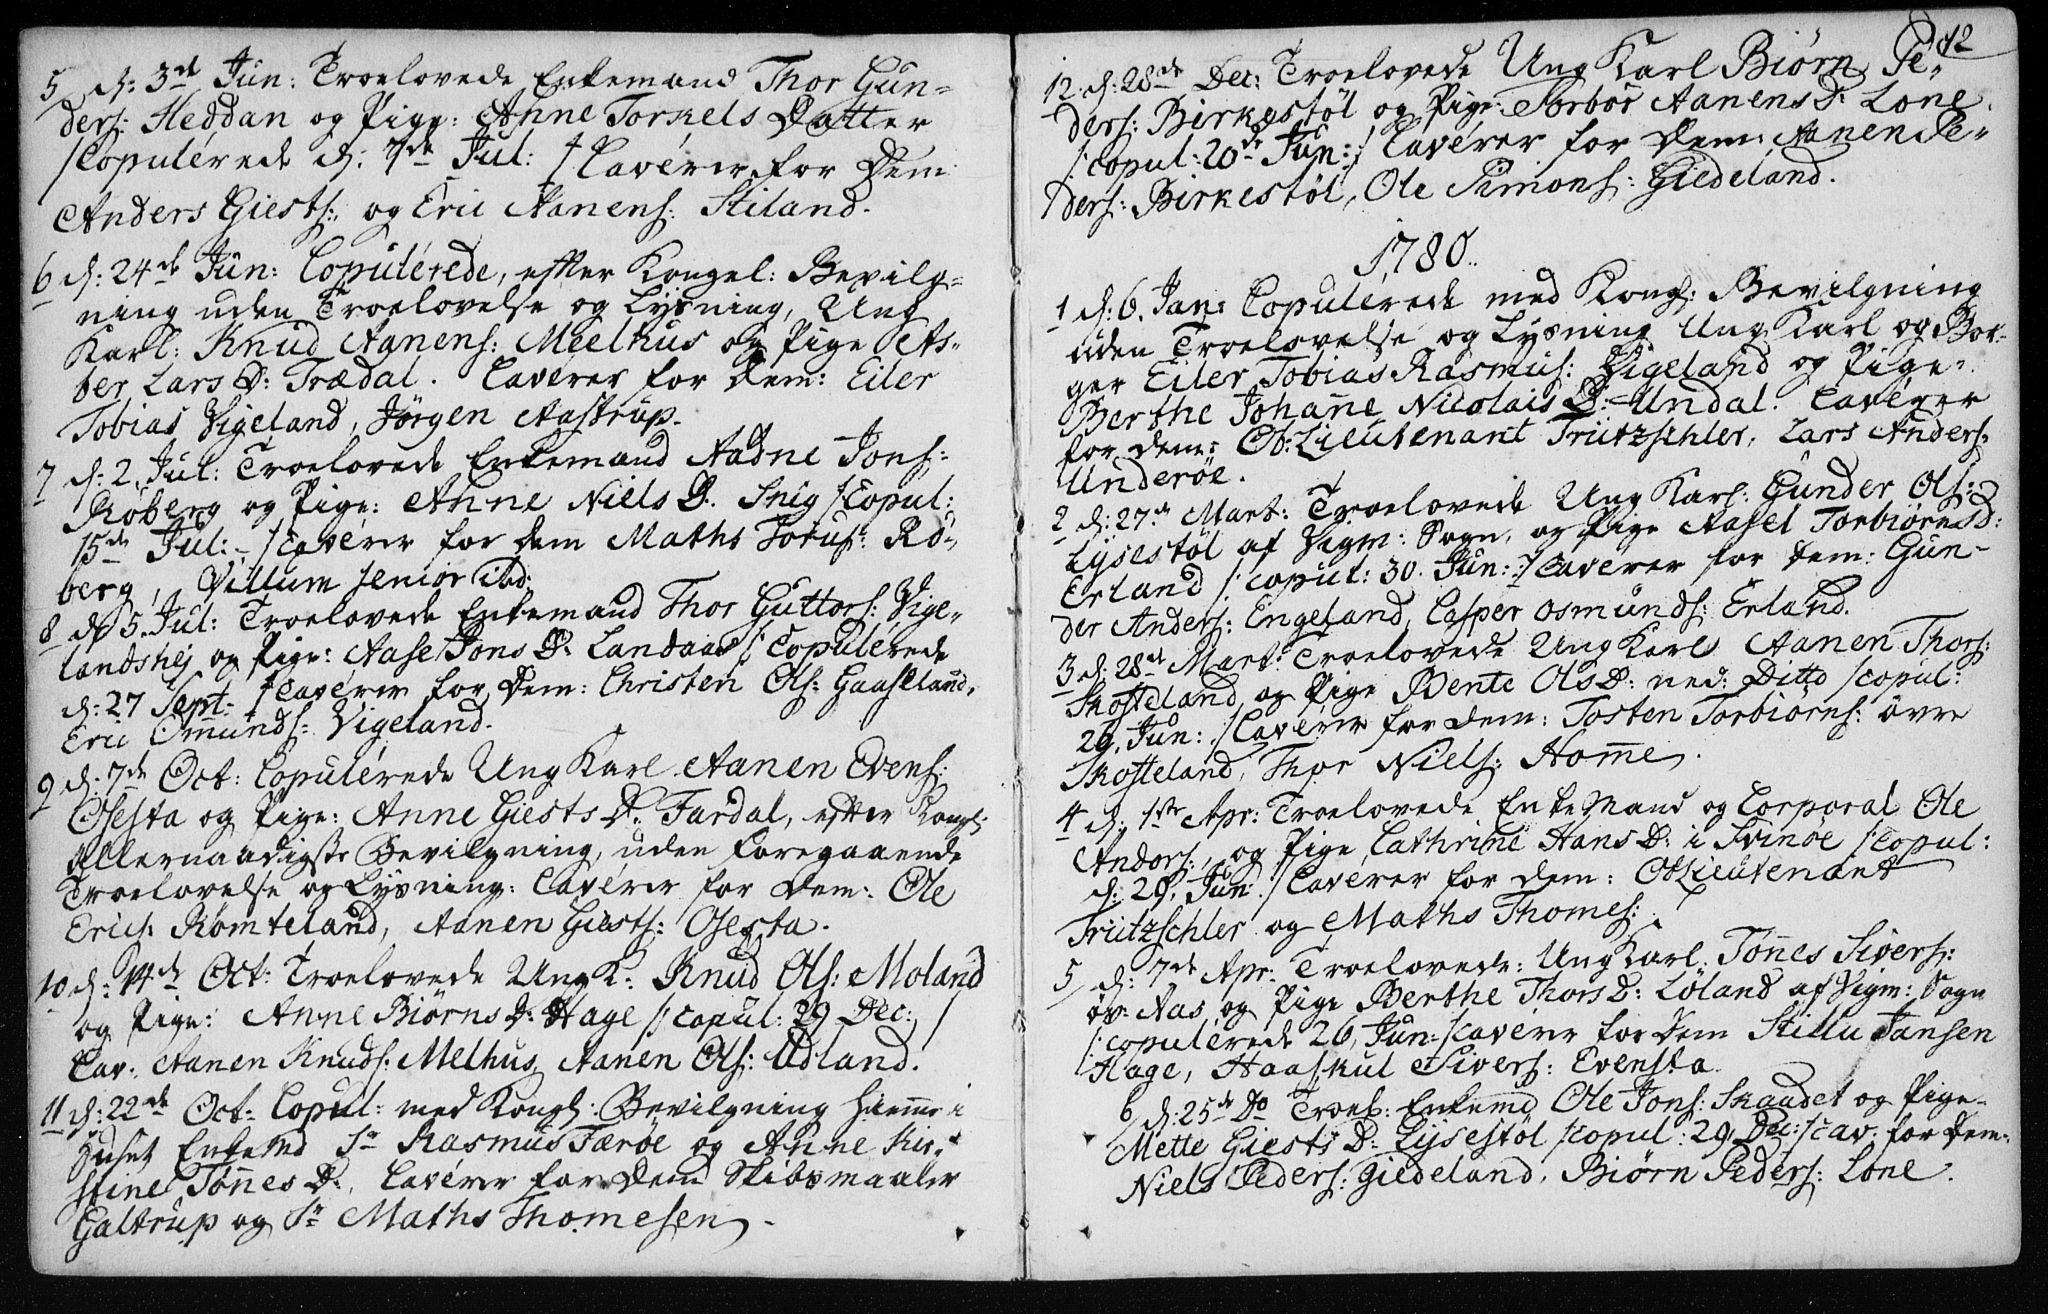 5 d: 3de Jun: Troelovede Enkemand Thor Gun-
ders: Heddan og Pige: Anne Torkels Datter
/Copulerede d: 7de Jul: / Caverer for Dem
Anders Giests:, og Eric Aanens: Stiland.
6 d: 24de Jun: Copulerede, efter Kongel: Bevilg-
ning uden Troelovelse og Lysning, Ung
Karl: Knud Aanens: Meelhus og Pige As-
ber Lars D: Trædal. Caverer for Dem: Eiler
Tobias Vigeland, Jörgen Aastrup.
7 d: 2. Jul: Troelovede Enkemand Aadne Jons:
Röberg og Pige: Anne Niels D. Snig /Copul:
15de Jul: /Caverer for dem Maths Joruf: Rö-
berg, Villum senior ibd:
8 d: 5. Jul: Troelovede Enkemand Thor Guttors: Vige-
landshej og Pige: Aase Jons D. Landaas /: Copulerede
d: 27 Sept: /Caverer for Dem: Christen Ols: Gaaseland,
Eric Omunds: Vigeland.
9 d: 7de Oct: Copulerede Ung Karl Aanen Evens:
Osesta og Pige: Anne Giests D. Fardal, efter Kongl:
allernaadigste Bevilgning, uden foregaaende
Troelovelse og Lysning: Caverer for Dem: Ole
Erics: Römteland, Aanen Giests: Osesta.
10 d: 14de Oct: Troelovede Ung K. Knud Ols: Moland
og Pige: Anne Biörns D. Hage /: copul: 29 Dec: /
Cav: Aanen Knuds: Melhus, Aanen Ols: Udland.
11 d: 22de Oct: Copul: med Kongl: Bevilgning hiemme i
Huset Enkemd Sr Rasmus Færöe og Anne Kir-
stine Tönnes D:, Caverer for Dem Skibsmaaler
Galtrup og Sr Maths Thomesen.
12
12. d: 28de Dec: Troelovede Ung Karl Biörn Pe-
ders: Birkestöl og Pige: Torbor Aanens D. Lone
/: copul: 20de Jun: / Caverer for Dem: Aanen Pe-
ders: Birkestöl, Ole Simons: Giedeland.
1780.
1 d: 6. Jan: Copulerede med Kongl: Bevilgning
uden Troelovelse og Lysning Ung Karl og Bor-
ger Eiler Tobias Rasmus: Vigeland og Pige:
Berthe Johan̄e Nicolais D: Undal. Caverer
for Dem: Ob: Lieutenant Trützschler, Lars Anders:
Underöe.
2 d: 27de Mart: Troelovede Ung Karl: Gunder Ols:
Lysestöl af Vigm: Sogn, og Pige Aasel Torbiörns d:
Erland /: copul: 30. Jun: :/ Caverer for dem: Gun-
der Anders: Engeland, Casper Osmunds: Erland.
3 d: 28de Mart: Troelovede Ung Karl Aanen Thors:
Skofteland og Pige Bente Ols D: ned: Ditto /copul:
29. Jun: :/ Caverer for dem: Tosten Torbiörns: övre
Skofteland, Thor Niels: Hom̄e.
4 d: 1ste Apr: Troelovede Enke Mand og Corporal Ole
Andors:, og Pige Cathrine Hans D: i Svinöe /:copul:
d: 29. Jun: :/ Caverer for dem: Ob Lieutenant
Trützschler og Maths Thomes:
5 d: 7de Apr: Troelovede: Ung Karl: Tön̄es Sivers:
öv: Aas og Pige Berthe Thors D: Löland af Vigm: Sogn
/: copulerede 26, Jun: /caverer for Dem Stillu Jansen
Hage, Haaskul Sivers: Evensta.
6 d: 25de Do Troel: Enkemd Ole Jons: Skaudet og Pige
Mette Giests D: Lysestöl /copul: 29, Dec: /cav: for Dem:
Niels Peders: Giedeland, Biörn Peders: Lone.